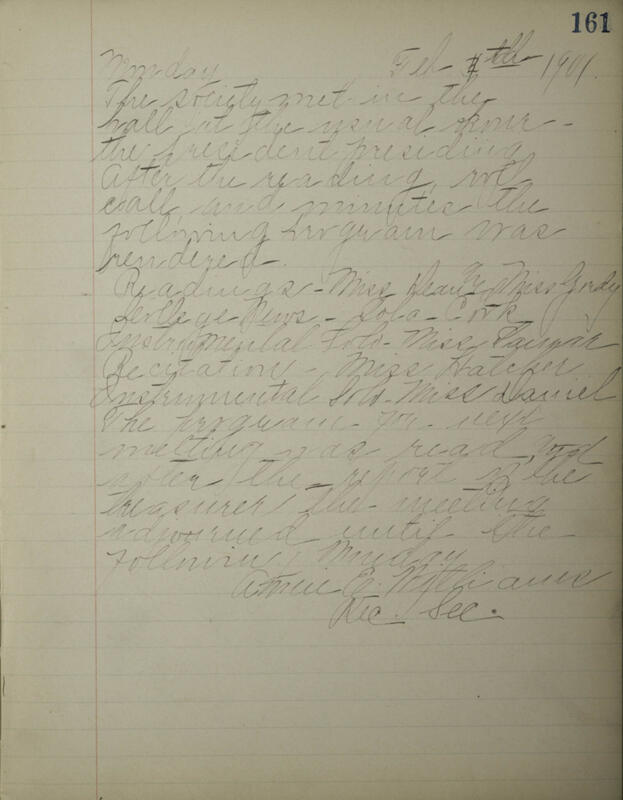 161
Monday Feb 4th 1901.
The society met in the
hall at the usual hour -
the president presiding
After the reading, roll
call and minutes the
following program was
rendered -
Readings - Miss Miss Gordy
College News - Lola Cook
Instrumental Solo - Miss Lamar
Recitation - Miss Hatcher
Instrumental Solo - Miss Daniel
The program for next
meeting was read and
after the report of the
treasurer the meeting
adjourned until the
following Monday
Annie E. Williams
Rec. Sec.